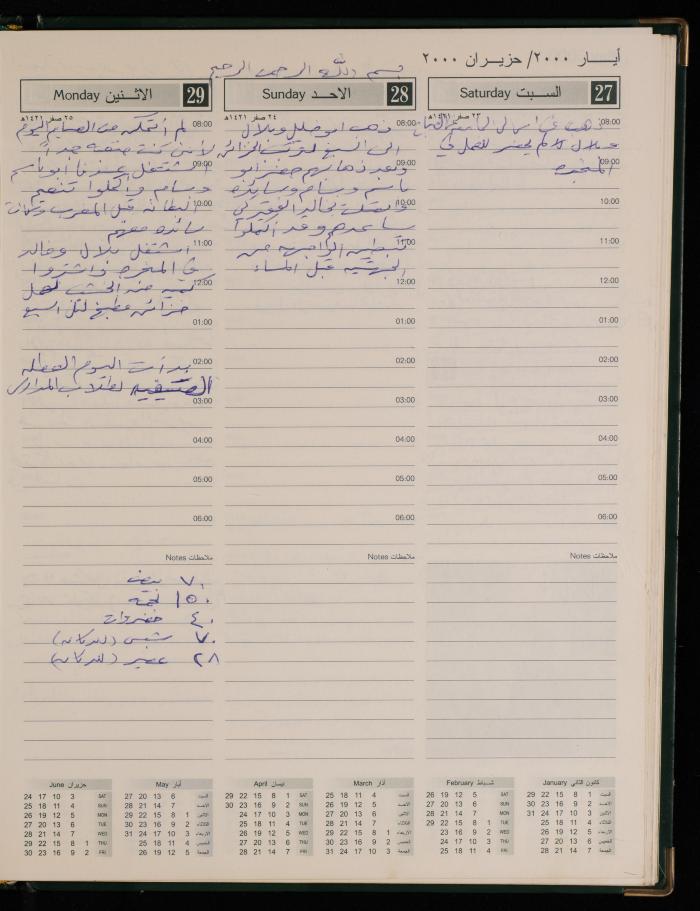 أيــار ٢٠٠٠/ حزيـران ٢٠٠٠
بسم الله الرحمن الرحيم
27 السـبت Saturday
٢٣ صفر ١٤٢١هـ
08:00 ذهبت
بلال لم يحضر للعمل في
09:00 المنجره
10:00
11:00
12:00
01:00
02:00
03:00
04:00
05:00
06:00
ملاحظات Notes
28 الاحـد Sunday
٢٤ صفر ١٤٢١هـ
08:00 ذهب ابو وبلال
الى لتركيب الخزائن
09:00 وبعد ذهابهم حضر ابو
باسم وسام وسائده
10:00
ساعدهم وقد أكملوا
11:00 تبطين الواجهه من
الجهتين قبل المساء
12:00
01:00
02:00
03:00
04:00
05:00
06:00
ملاحظات Notes
29 الاثـنين Monday
٢٥ صفر ١٤٢١هـ
08:00 لم أتمكن من الصيام اليوم
لأنني كنت متعبه جداً
09:00 اشتغل عندنا أبو باسم
وسام وأكملوا
10:00 قبل المغرب وكانت
سائده معهم
11:00 اشتغل بلال وخالد
في المنجره واشتروا
12:00 كميه من الخشب لعمل
خزائن مطبخ
01:00
02:00 بدأت اليوم العطله
الصيفيه لطلاب المدارس
03:00
04:00
05:00
06:00
ملاحظات Notes
٧٠ بيض
١٥٠ لحمة
٤٠ خضروات
٧٠ شبس (للدكان)
٢٨ عصير (للدكان)
كانون الثاني January
السبت 1 8 15 22 29
الأحد 2 9 16 23 30
الاثنين 3 10 17 24 31
الثلاثاء 4 11 18 25
الاربعاء 5 12 19 26
الخميس 6 13 20 27
الجمعة 7 14 21 28
شـباط February
SAT 5 12 19 26
SUN 6 13 20 27
MON 7 14 21 28
TUE 1 8 15 22 29
WED 2 9 16 23
THU 3 10 17 24
FRI 4 11 18 25
آذار March
السبت 4 11 18 25
الأحد 5 12 19 26
الاثنين 6 13 20 27
الثلاثاء 7 14 21 28
الاربعاء 1 8 15 22 29
الخميس 2 9 16 23 30
الجمعة 3 10 17 24 31
نيسان April
SAT 1 8 15 22 29
SUN 2 9 16 23 30
MON 3 10 17 24
TUE 4 11 18 25
WED 5 12 19 26
THU 6 13 20 27
FRI 7 14 21 28
أيار May
السبت 6 13 20 27
الأحد 7 14 21 28
الاثنين 1 8 15 22 29
الثلاثاء 2 9 16 23 30
الاربعاء 3 10 17 24 31
الخميس 4 11 18 25
الجمعة 5 12 19 26
حزيران June
SAT 3 10 17 24
SUN 4 11 18 25
MON 5 12 19 26
TUE 6 13 20 27
WED 7 14 21 28
THU 1 8 15 22 29
FRI 2 9 16 23 30